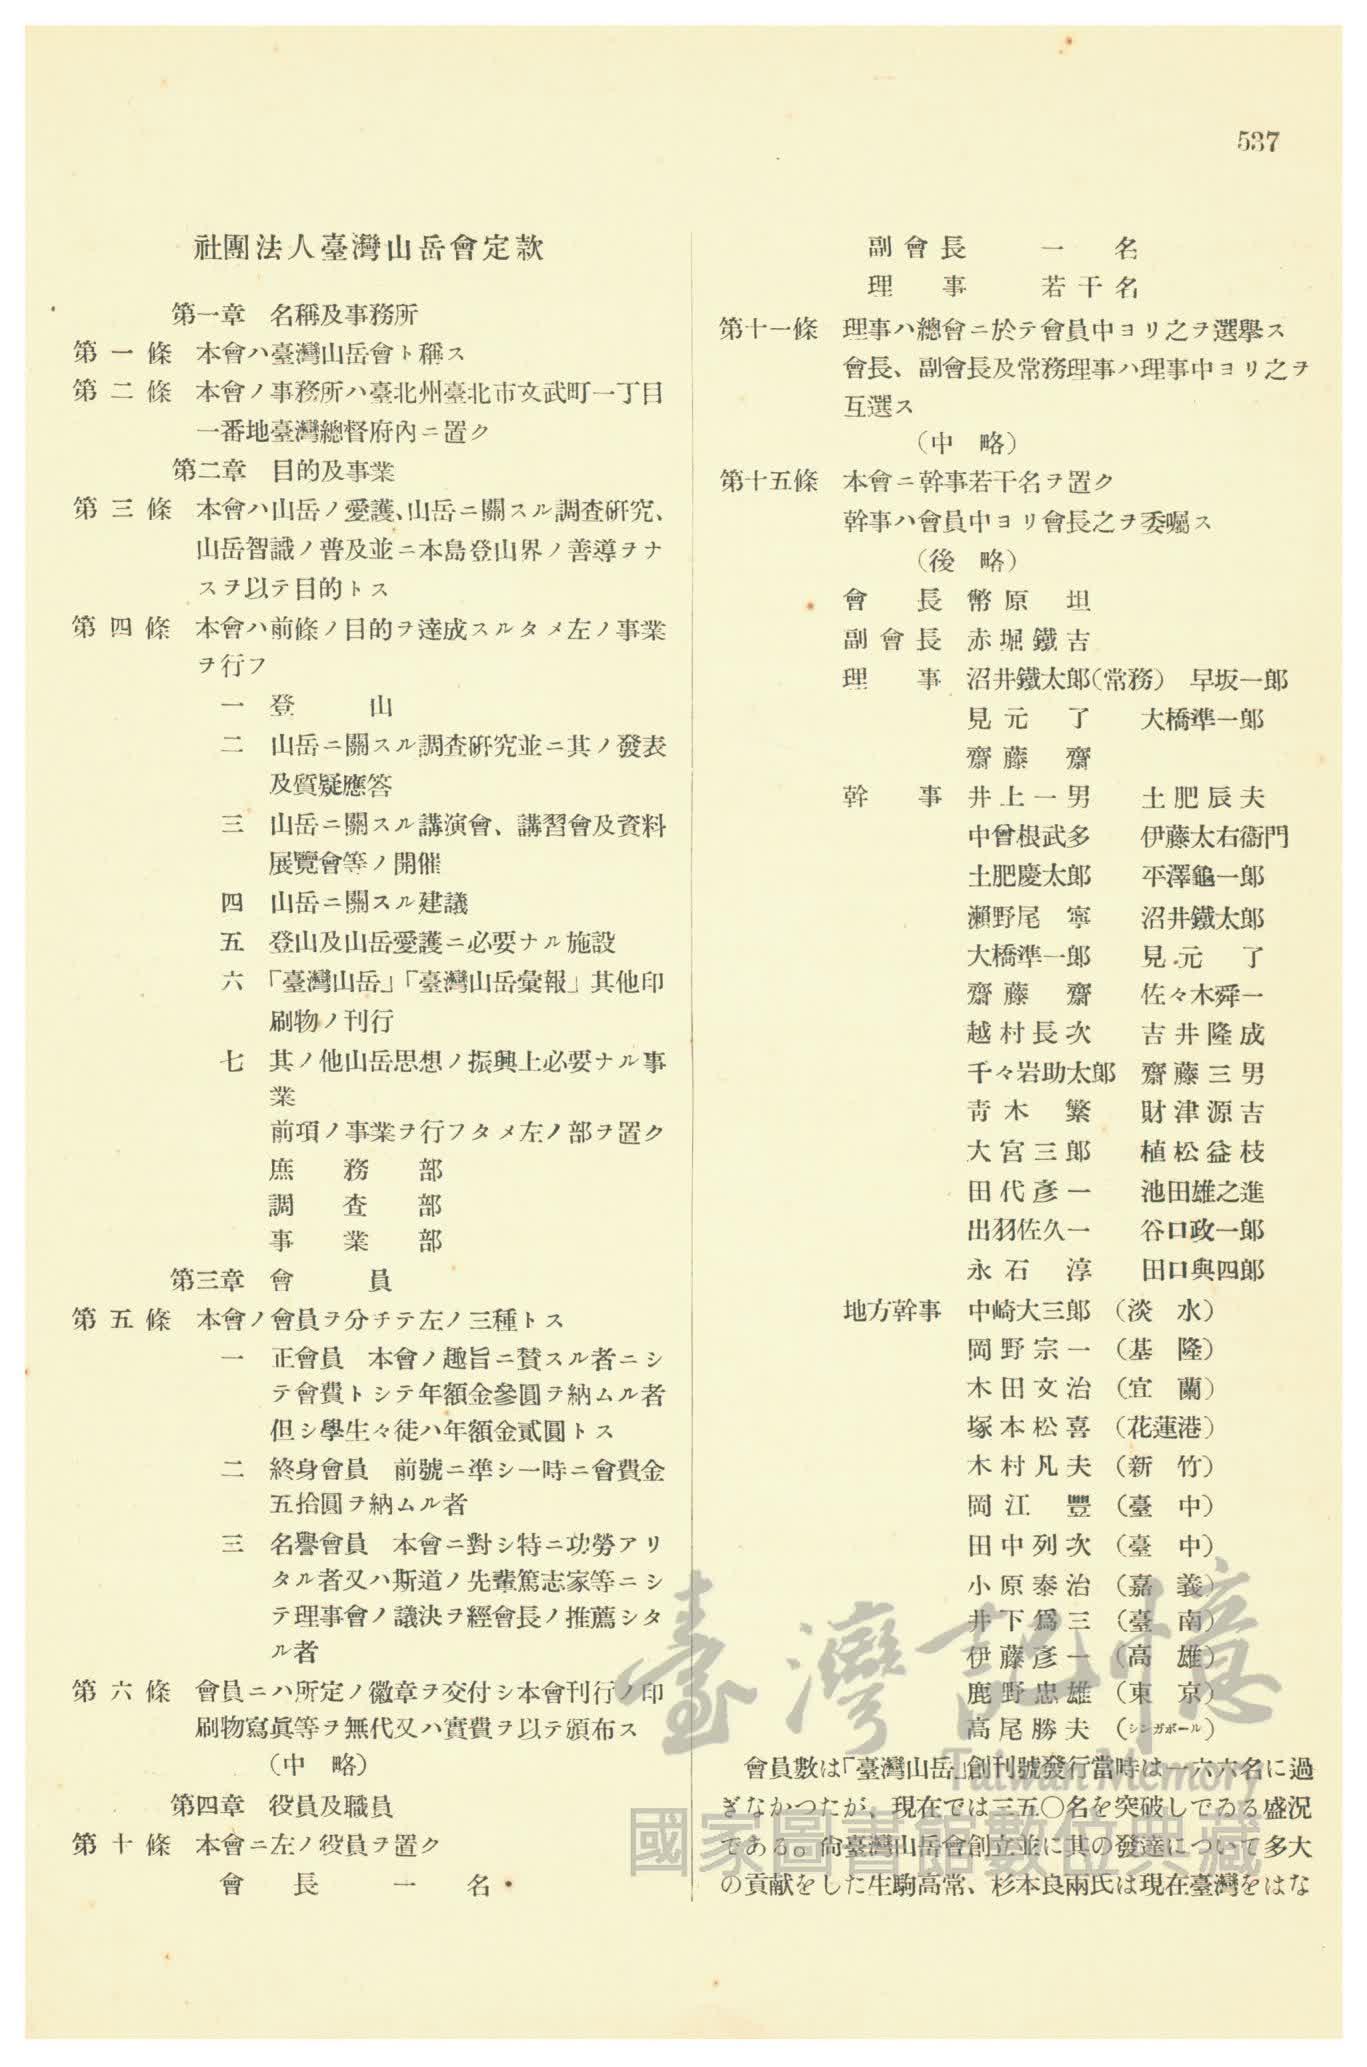 537
社團法人臺灣山岳會定款
第一章　名稱及事務所
第一條　本會ハ臺灣山岳會ト稱ス
第二條　本會ノ事務所ハ臺北州臺北市文武町一丁目
一番地臺灣總督府內ニ置ク
第二章　目的及事業
第三條　本會ハ山岳ノ愛護、山岳ニ關スル調査硏究、
山岳智識ノ普及並ニ本島登山界ノ善導ヲナ
スヲ以テ目的トス
第四條　本會ハ前條ノ目的ヲ達成スルタメ左ノ事業
ヲ行フ
一　登　　山
二　山岳ニ關スル調査硏究並ニ其ノ發表
及質疑應答
三　山岳ニ關スル講演會、講習會及資料
展覽會等ノ開催
四　山岳ニ關スル建議
五　登山及山岳愛護ニ必要ナル施設
六　「臺灣山岳」「臺灣山岳彙報」其他印
刷物ノ刊行
七　其ノ他山岳思想ノ振興上必要ナル事
業
前項ノ事業ヲ行フタメ左ノ部ヲ置ク
庶　務　部
調　査　部
事　業　部
第三章　會　　員
第五條　本會ノ會員ヲ分チテ左ノ三種トス
一　正會員　本會ノ趣旨ニ賛スル者ニシ
テ會費トシテ年額金參圓ヲ納ムル者
但シ學生々徒ハ年額金貳圓トス
二　終身會員　前號ニ準シ一時ニ會費金
五拾圓ヲ納ムル者
三　名譽會員　本會ニ對シ特ニ功勞アリ
タル者又ハ斯道ノ先輩篤志家等ニシ
テ理事會ノ議決ヲ經會長ノ推薦シタ
ル者
第六條　會員ニハ所定ノ徽章ヲ交付シ本會刊行ノ印
刷物寫眞等ヲ無代又ハ實費ヲ以テ頒布ス
（中　略）
第四章　役員及職員
第十條　本會ニ左ノ役員ヲ置ク
會　長　　一　名
副會長　　一　名
理　事　　若干名
第十一條　理事ハ總會ニ於テ會員中ヨリ之ヲ選擧ス
會長、副會長及常務理事ハ理事中ヨリ之ヲ
互選ス
（中　略）
第十五條　本會ニ幹事若干名ヲ置ク
幹事ハ會員中ヨリ會長之ヲ委囑ス
（後　略）
會　長　幣原　坦
副會長　赤堀鐵吉
理　事　沼井鐵太郞（常務）　早坂一郞
見元　了　大橋準一郞
齋藤　齋
幹　事　井上一男　土肥辰夫
中曾根武多　伊藤太右衞門
土肥慶太郞　平澤龜一郞
瀨野尾　寧　沼井鐵太郞
大橋準一郞　見元　了
齋藤　齋　佐々木舜一
越村長次　吉井隆成
千々岩助太郞　齋藤三男
靑木　繁　財津源吉
大宮三郞　植松益枝
田代彥一　池田雄之進
出羽佐久一　谷口政一郞
永石　淳　田口與四郞
地方幹事　中崎大三郞　（淡　水）
岡野宗一　（基　隆）
木田文治　（宜　蘭）
塚本松喜　（花蓮港）
木村凡夫　（新　竹）
岡江　豐　（臺　中）
田中列次　（臺　中）
小原泰治　（嘉　義）
井下爲三　（臺　南）
伊藤彥一　（高　雄）
鹿野忠雄　（東　京）
高尾勝夫　（シンガポール）
會員數は「臺灣山岳」創刊號發行當時は一六六名に過
ぎなかつたが、現在では三五〇名を突破しでゐる盛況
である。尙臺灣山岳會創立並に其の發達について多大
の貢献をした生駒高常、杉本良兩氏は現在臺灣をはな
臺灣記憶
Taiwan Memory
國家圖書館數位典藏